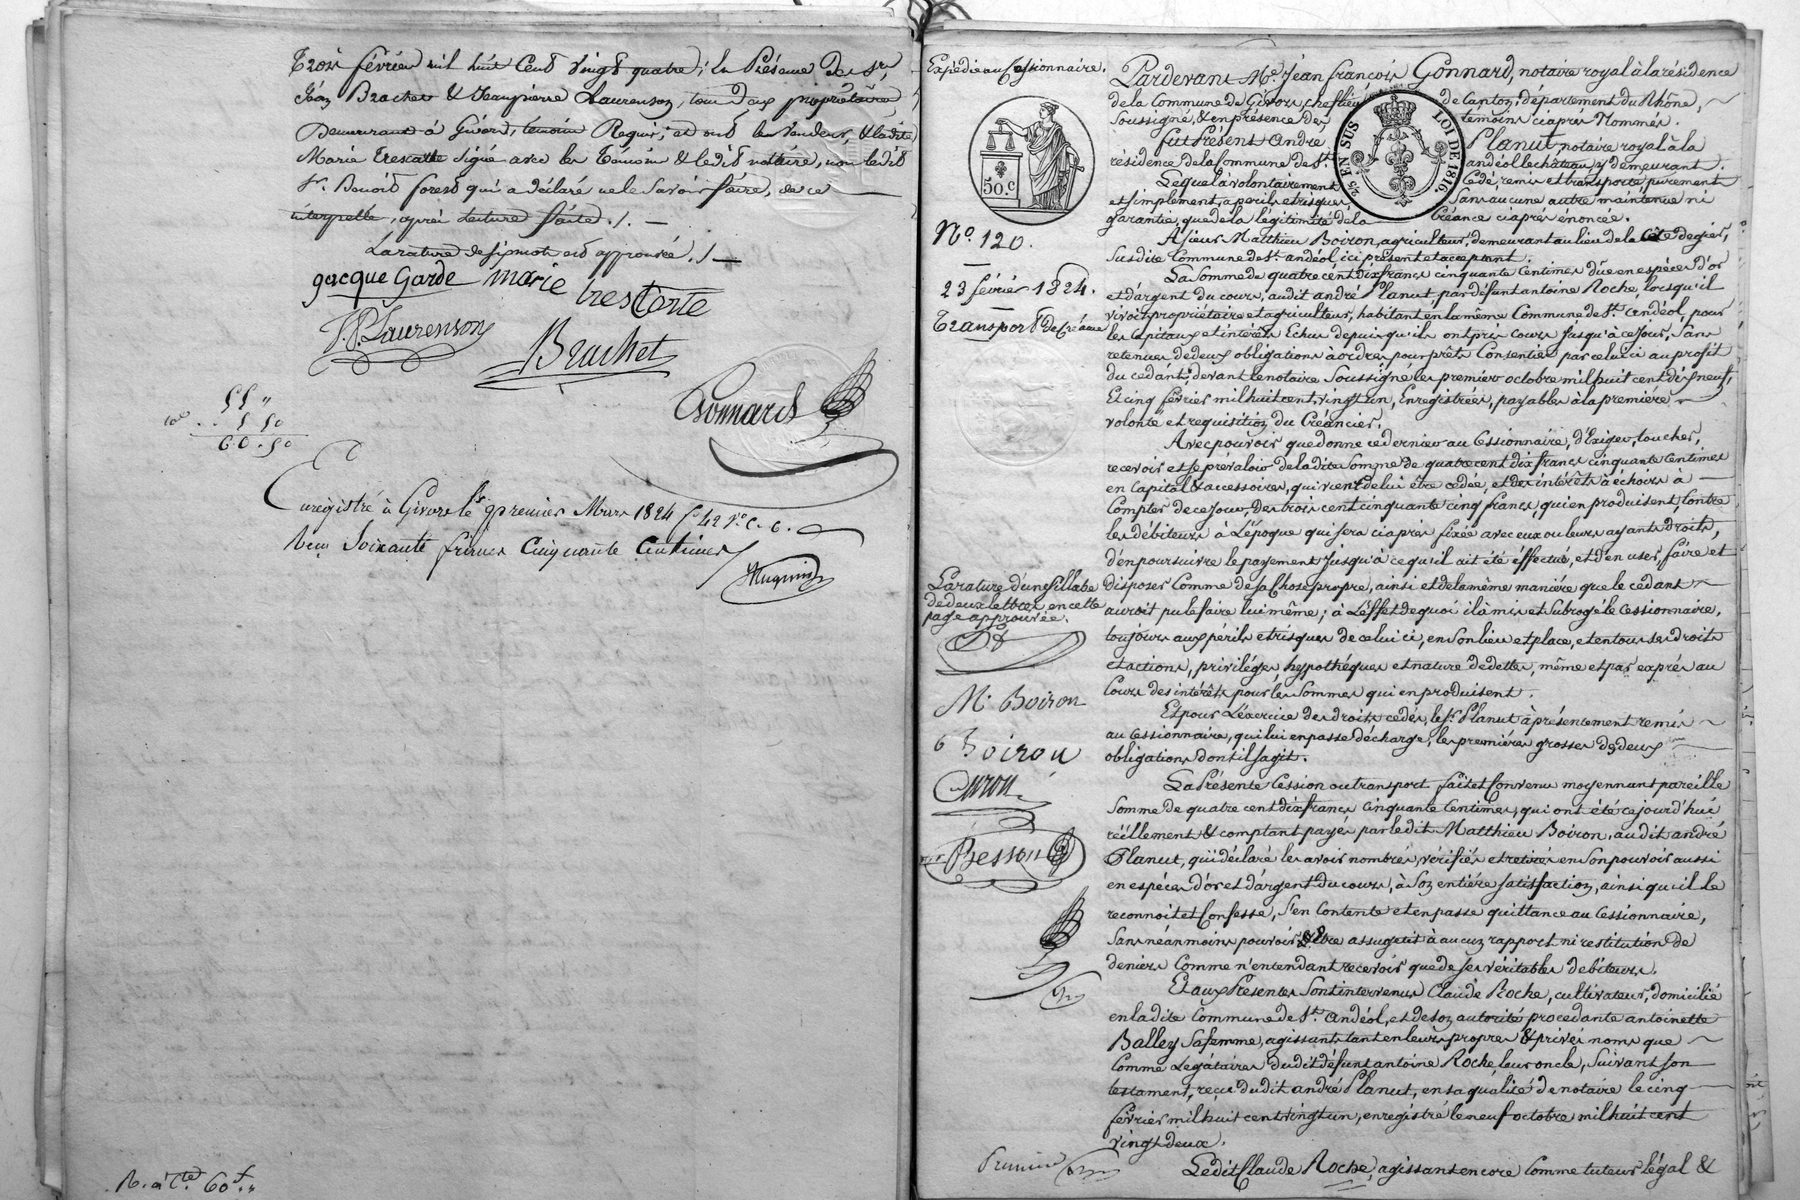 Trois février mil huit Cent vingt quatre; en Présence de Sr.
Jean Brachet & Jeanpierre Laurenson, tous deux propriétaires
Demeurants à Givors, témoins Requis; et ont les Vendeurs, & ladite
Marie Trescarte Signé avec les Témoins & ledit notaire, non ledit
Sr. Benoit forest qui a déclaré ne le Savoir faire, de ce
interpellé, après Lecture faite ./. —
La rature de six mots est approuvée ./. —
gacque Garde marie trescarte
J.P. Laurenson
Brachet
Gonnard
55 "
5 50
60.50
Enregistré à Givors le premier Mars 1824 fo. 42 vo. C. 6.
Reçu Soixante francs Cinquante Centimes
Huguin
60f.
Expédié au Cessionnaire.
50.c
25 EN SUS LOI DE 1816
No. 120.
23 février 1824.
Transport de Créance
La rature d'une sillabe
de deux lettres, en cette
page approuvée.
M. Boiron
Boirou
Besson
Par devant Me. Jean françois Gonnard, notaire royal à la résidence
de la Commune de Givors, chef lieu de Canton, département du Rhône,
Soussigné, & en présence des témoins ci après Nommés.
fut Présent André Planut, notaire royal à la
résidence de la Commune de St. andéol le château, y demeurant.
Lequel à volontairement Cédé, remis et transporté, purement
et simplement, à perils et risques, Sans aucune autre maintenue ni
garantie, que de la légitimité de la Créance ci après énoncée.
A Sieur Matthieu Boiron, agriculteur, demeurant au lieu de la Côte de gier,
Susdite Commune de St. andéol, ici présent et acceptant.
La Somme de quatre cent dix francs cinquante Centimes dûe en espèces d'or
et d'argent du cours, audit andré Planut, par défunt antoine Roche, lorsqu'il
vivoit propriétaire et agriculteur, habitant en la même Commune de St. Andéol, pour
les Capitaux et intérêts Echus depuis qu'ils ont pris cours jusqu'à ce jour, Sans
retenue, de deux obligations à ordre pour prêts Consenties par celui ci au profit
du cédant, devant le notaire Soussigné les premier octobre mil huit cent dix neuf,
Et cinq février mil huit cent vingt un, Enregistrées, payables à la première
volonté et requisition du Créancier.
Avec pouvoir que donne ce dernier au Cessionnaire, d'Exiger, toucher,
recevoir et se prévaloir de la dite Somme de quatre cent dix francs cinquante Centimes
en Capital & accessoires, qui vient de lui être cédée, et des intérêts à échoir à
Compter de ce Jour, des trois cent cinquante cinq francs, qui en produisent, Contre
les débiteurs à l'époque qui sera ci après fixée avec eux ou leurs ayants droits,
d'en poursuivre le payement jusqu'à ce qu'il ait été éffectué, et d'en user, faire et
disposer Comme de sa Chose propre, ainsi et de la même manière que le cédant
auroit pu le faire lui même; à l'éffet de quoi il à mis et Subrogé le Cessionnaire,
toujours aux périls et risques de celui ci, en Son lieu et place, et en tous ses droits
et actions, priviléges, hypothéques et nature de dette, même et par exprès au
Cours des intérêts pour les Sommes qui en produisent.
Et pour L'éxercice des droits cédés, le Sr. Planut à présentement remis
au Cessionnaire, qui lui en passe décharge, les premières grosses des deux
obligations dont il s'agit.
La Présente Cession ou transport fait et Convenu moyennant pareille
Somme de quatre cent dix francs cinquante Centimes, qui ont été ce jourd'hui
réellement & comptant payés par ledit Matthieu Boiron, audit andré
Planut, qui déclaré les avoir nombrés, vérifiés et retirés en Son pouvoir aussi
en espèces d'or et d'argent du cours, à Son entière satisfaction, ainsi qu'il le
reconnoit et Confesse, S'en Contente et en passe quittance au Cessionnaire,
Sans néanmoins pouvoir être assugetit à aucun rapport ni restitution de
deniers Comme n'entendant recevoir que de Ses véritables débiteurs.
Et aux Présentes Sont intervenus Claude Roche, cultivateur, domicilié
en la dite Commune de St. andéol, et de Son autorité procedante antoinette
Balley Sa femme, agissants tant en leurs propres & privés noms que
Comme Légataires dudit défunt antoine Roche leur oncle, Suivant Son
testament, reçu dudit andré Planut, en sa qualité de notaire le cinq
février mil huit cent vingt un, enregistré le neuf octobre mil huit cent
vingt deux.
Ledit Claude Roche, agissant encore Comme tuteur légal &